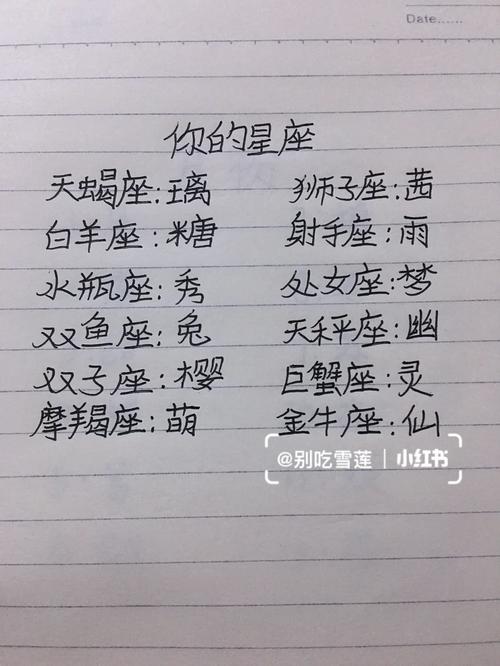 Date......
你的星座
天蝎座:璃 狮子座:茜
白羊座:糖 射手座:雨
水瓶座:秀 处女座:梦
双鱼座:兔 天秤座:幽
双子座:樱 巨蟹座:灵
摩羯座:萌 金牛座:仙
@别吃雪莲 | 小红书